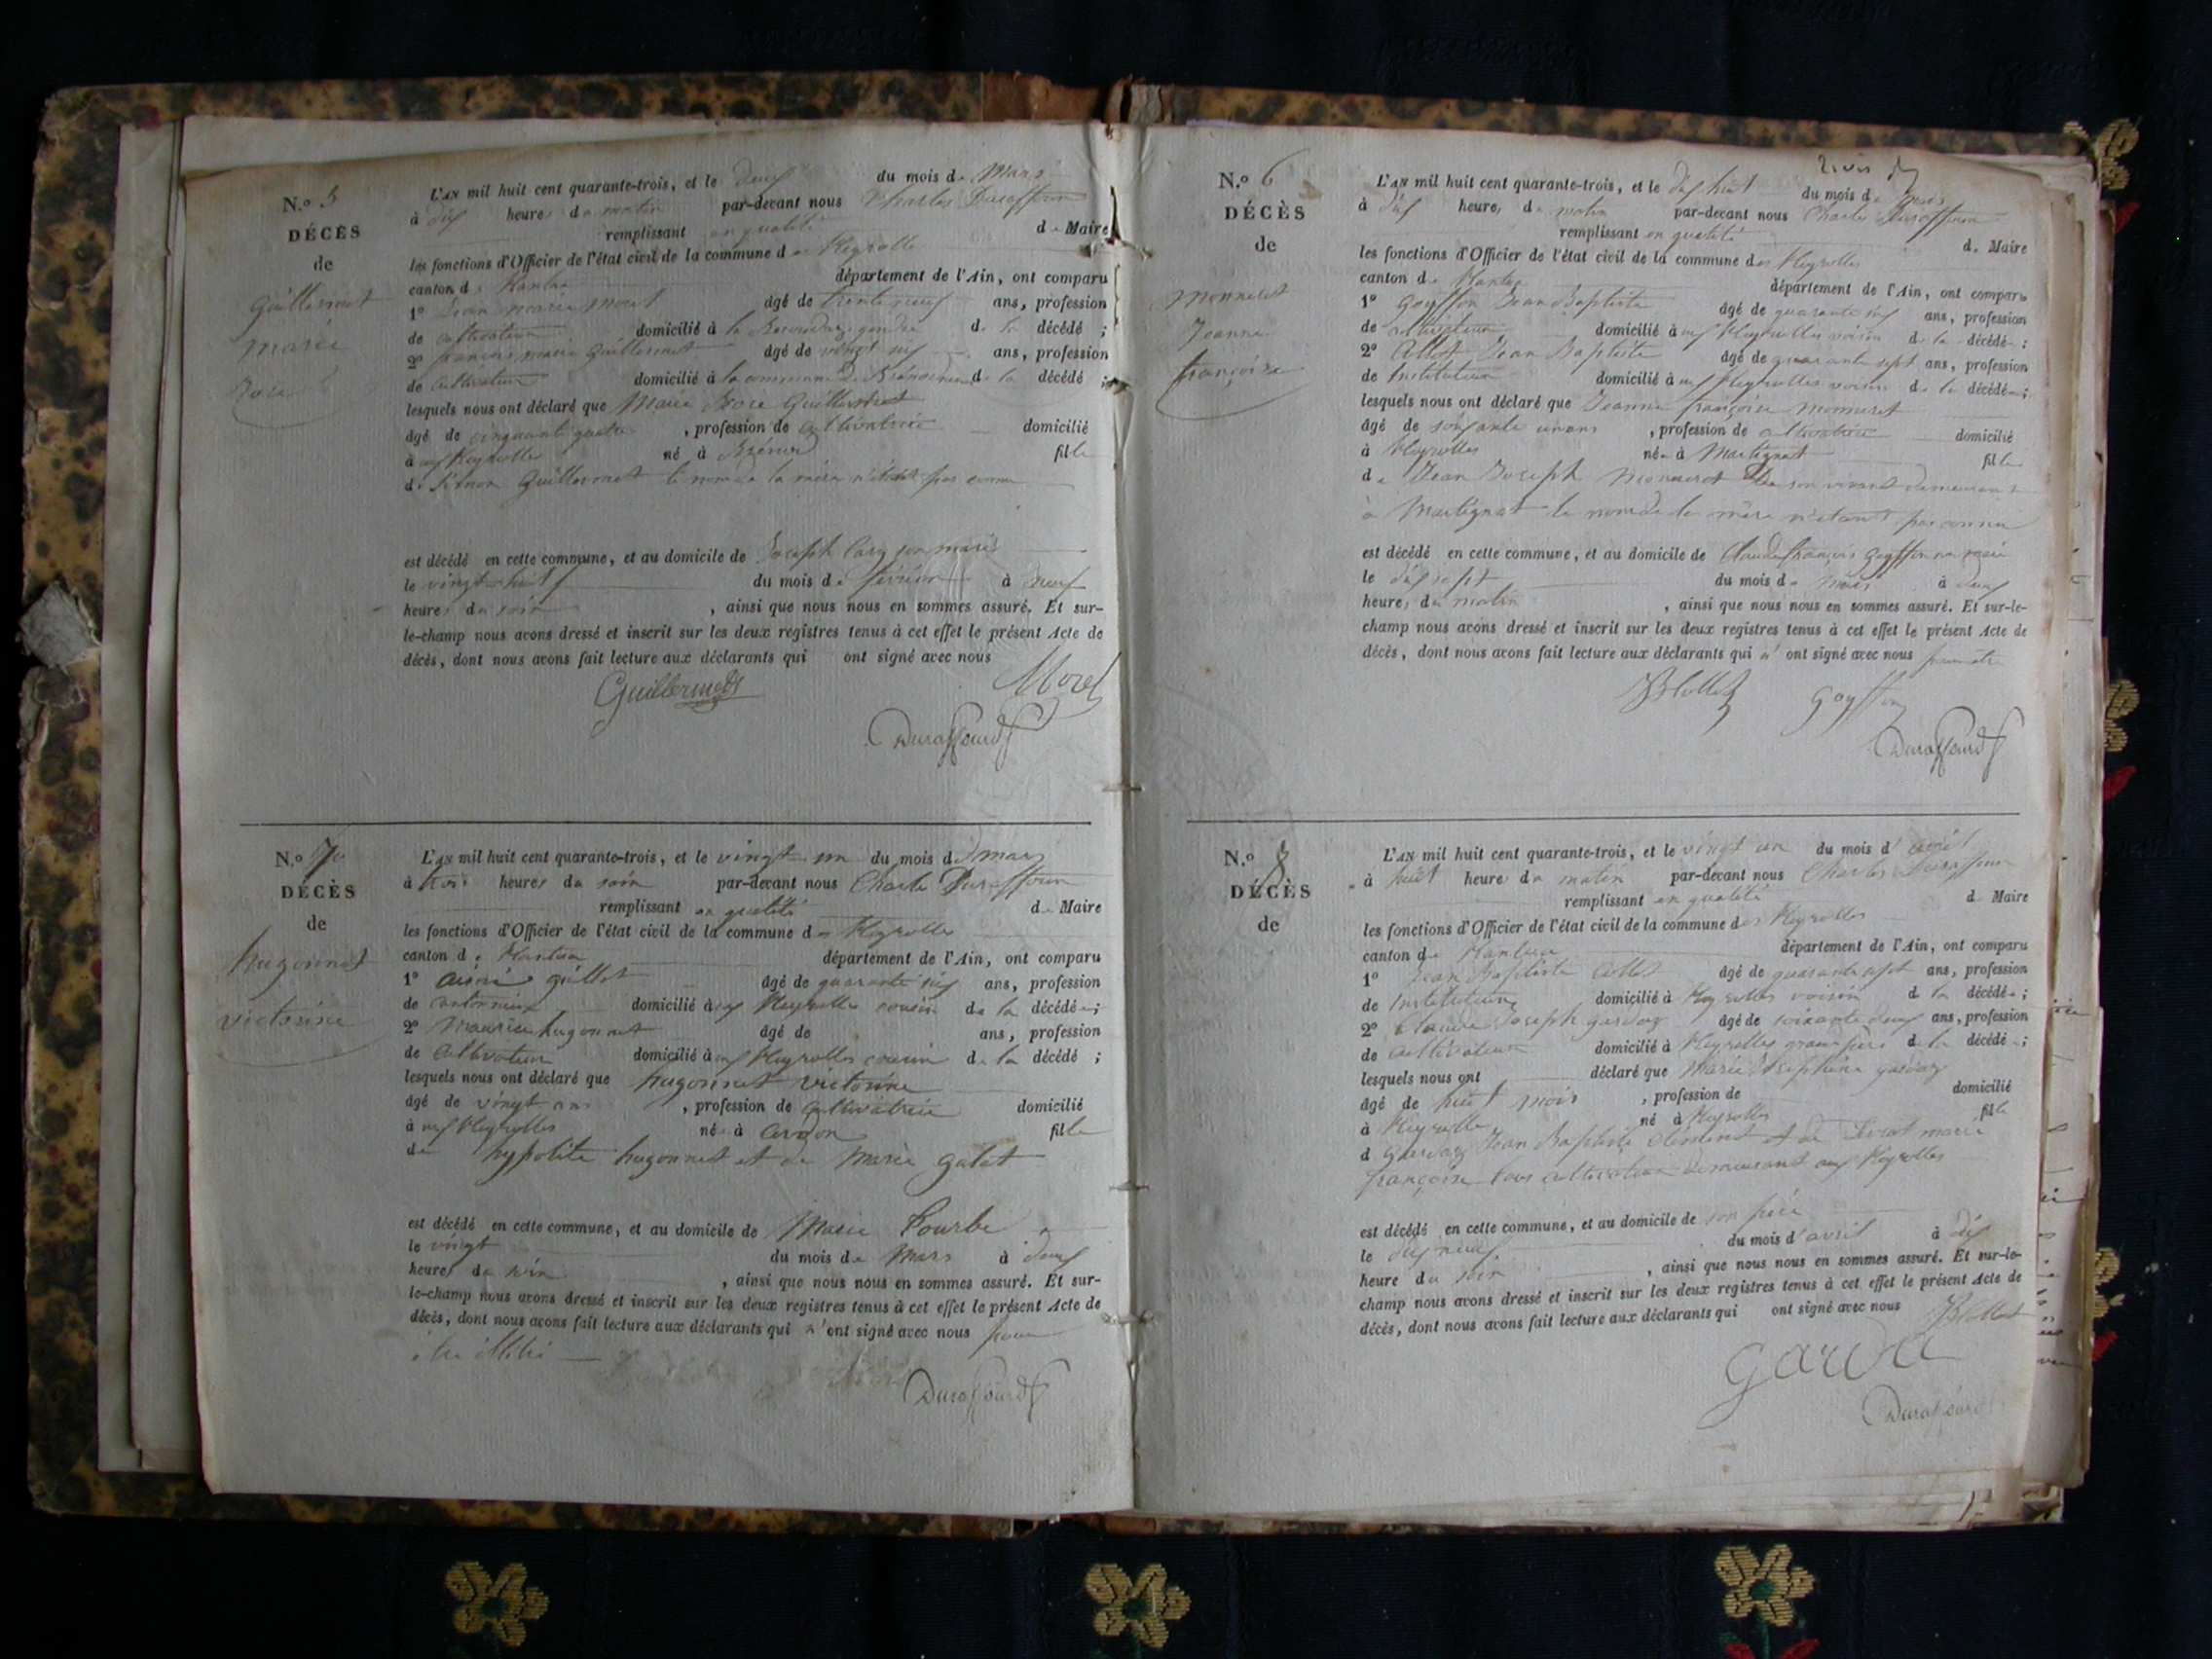 N.o 5
DÉCÈS
de
Guillermet
marie
Rose
L'AN mil huit cent quarante-trois, et le deux du mois de Mars
à dix heures du matin par-devant nous Charles Duraffour
remplissant en qualité de Maire
les fonctions d'Officier de l'état civil de la commune des Neyrolles
canton de Nantua département de l'Ain, ont comparu
1° Jean marie moret âgé de trente neuf ans, profession
de cultivateur domicilié à gendre de la décédé ;
2° françois marie Guillermet âgé de vingt six ans, profession
de cultivateur domicilié à la commune de de la décédé ;
lesquels nous ont déclaré que Marie Rose Guillermet
âgé de cinquante quatre , profession de cultivatrice domicilié
à aux Neyrolles né à Brénod fille
de Simon Guillermet le nom de la mère n'étant pas connu
est décédé en cette commune, et au domicile de Joseph son mari
le vingt huit du mois de février à neuf
heures du soir , ainsi que nous nous en sommes assuré. Et sur-
le-champ nous avons dressé et inscrit sur les deux registres tenus à cet effet le présent Acte de
décès, dont nous avons fait lecture aux déclarants qui ont signé avec nous
Guillermet Morel
Duraffourd
N.o 7
DÉCÈS
de
hugonnet
victorine
L'AN mil huit cent quarante-trois, et le vingt un du mois de mars
à trois heures du soir par-devant nous Charle Duraffour
remplissant en qualité de Maire
les fonctions d'Officier de l'état civil de la commune des Neyrolles
canton de Nantua département de l'Ain, ont comparu
1° aimé guillot âgé de quarante six ans, profession
de cantonnier domicilié à aux Neyrolles cousin de la décédée ;
2° Maurice hugonnet âgé de ans, profession
de cultivateur domicilié à aux Neyrolles cousin de la décédé ;
lesquels nous ont déclaré que hugonnet victorine
âgé de vingt ans , profession de cultivatrice domicilié
à aux Neyrolles née à Cerdon fille
de hypolite hugonnet et de Marie galet
est décédé en cette commune, et au domicile de Marie Pourbe
le vingt du mois de Mars à deux
heures du soir , ainsi que nous nous en sommes assuré. Et sur-
le-champ nous avons dressé et inscrit sur les deux registres tenus à cet effet le présent Acte de
décès, dont nous avons fait lecture aux déclarants qui n'ont signé avec nous pour
Duraffourd
N.o 6
DÉCÈS
de
Monneret
Jeanne
françoise
L'AN mil huit cent quarante-trois, et le dix huit du mois de mars
à dix heures du matin par-devant nous Charles Duraffour
remplissant en qualité de Maire
les fonctions d'Officier de l'état civil de la commune des Neyrolles
canton de Nantua département de l'Ain, ont comparu
1° Goyffon Jean Baptiste âgé de quarante six ans, profession
de cultivateur domicilié à aux Neyrolles voisin de la décédée ;
2° Allot Jean Baptiste âgé de quarante sept ans, profession
de Instituteur domicilié à aux Neyrolles voisin de la décédée ;
lesquels nous ont déclaré que Jeanne françoise Monneret
âgé de soixante un ans , profession de cultivatrice domicilié
à Neyrolles née à Martignat fille
de Jean Joseph Monneret de son vivant demeurant
à Martignat le nom de la mère n'étant pas connu
est décédé en cette commune, et au domicile de Claude françois Goyffon son mari
le dix sept du mois de mars à deux
heures du matin , ainsi que nous nous en sommes assuré. Et sur-le-
champ nous avons dressé et inscrit sur les deux registres tenus à cet effet le présent Acte de
décès, dont nous avons fait lecture aux déclarants qui ont signé avec nous
JBAllot Goyffon
Duraffourd
N.o 8
DÉCÈS
de
L'AN mil huit cent quarante-trois, et le vingt un du mois d'avril
à huit heures du matin par-devant nous Charles Duraffour
remplissant en qualité de Maire
les fonctions d'Officier de l'état civil de la commune des Neyrolles
canton de Nantua département de l'Ain, ont comparu
1° Jean Baptiste Allot âgé de quarante sept ans, profession
de Instituteur domicilié à Neyrolles voisin de la décédée ;
2° Claude Joseph gardaz âgé de soixante deux ans, profession
de cultivateur domicilié à Neyrolles grand père de la décédée ;
lesquels nous ont déclaré que Marie Josephine gardaz
âgé de huit mois , profession de domicilié
à Neyrolles né à Neyrolles fille
d gardaz Jean Baptiste Clément et de marie
françoise tous cultivateur demeurant aux Neyrolles
est décédé en cette commune, et au domicile de son père
le dix neuf du mois d'avril à dix
heure du soir , ainsi que nous nous en sommes assuré. Et sur-le-
champ nous avons dressé et inscrit sur les deux registres tenus à cet effet le présent Acte de
décès, dont nous avons fait lecture aux déclarants qui ont signé avec nous JBAllot
Garda
Duraffourd